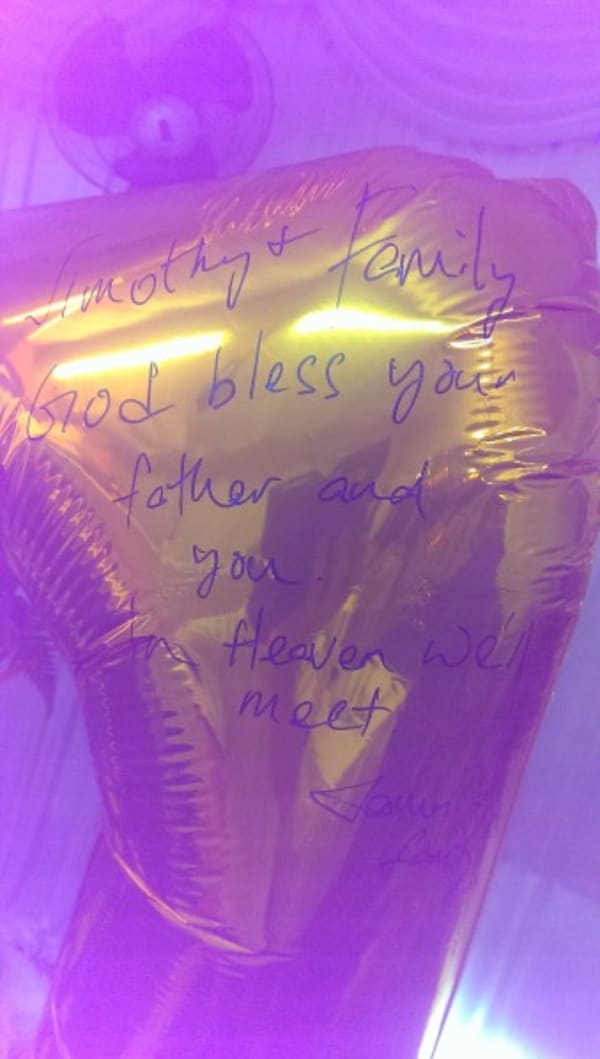 Timothy & Family
God bless your
father and
you.
In Heaven we'll
meet